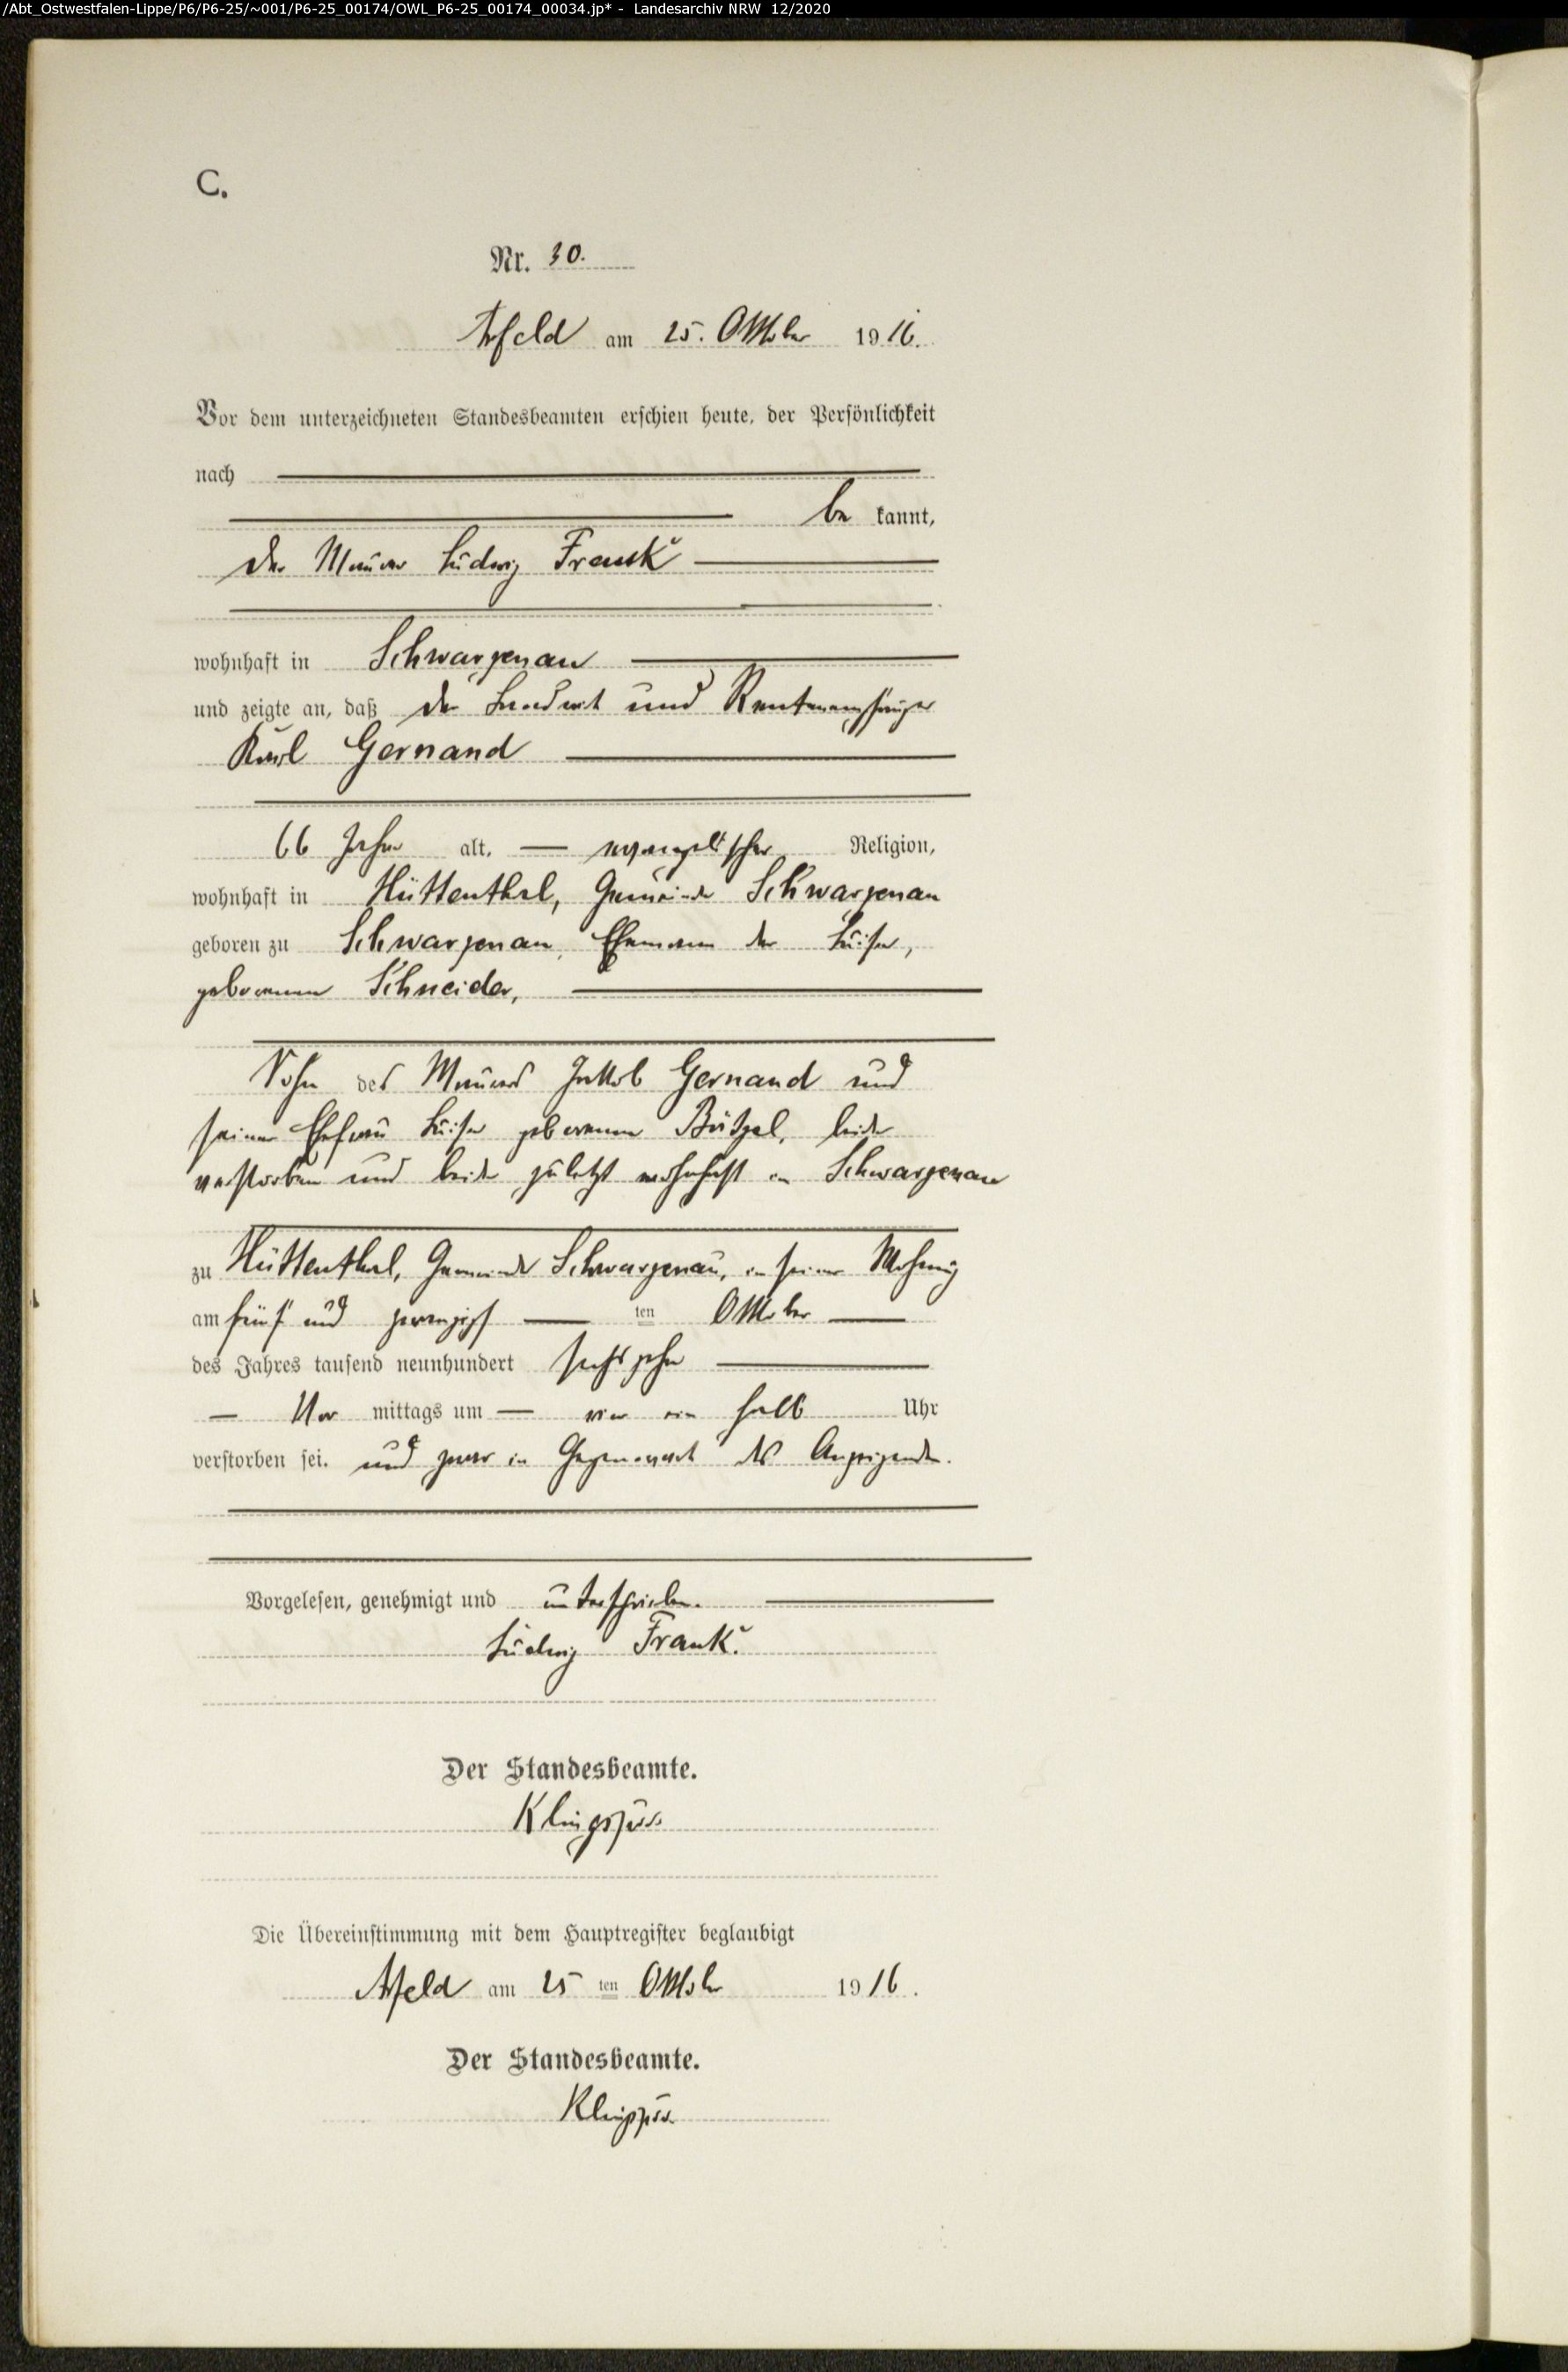 /Abt_Ostwestfalen-Lippe/P6/P6-25/~001/P6-25_00174/OWL_P6-25_00174_00034.jp* - Landesarchiv NRW 12/2020
C.
Nr. 30.
Arfeld am 25. Oktober 1916.
Vor dem unterzeichneten Standesbeamten erschien heute, der Persönlichkeit
nach
be kannt,
der Maurer Ludwig Frank
wohnhaft in Schwarzenau
und zeigte an, daß der Landwirt und Rentenempfänger
Karl Gernand
66 Jahre alt, evangelischer Religion,
wohnhaft in Hüttenthal, Gemeinde Schwarzenau
geboren zu Schwarzenau, Ehemann der Luise,
geborenen Schneider,
Sohn des Maurers Jakob Gernand und
seiner Ehefrau Luise geborenen Bätzel, beide
verstorben und beide zuletzt wohnhaft in Schwarzenau
zu Hüttenthal, Gemeinde Schwarzenau, in seiner Wohnung
am fünf und zwanzigst ten Oktober
des Jahres tausend neunhundert sechszehn
Vor mittags um vier ein halb Uhr
verstorben sei. und zwar in Gegenwart des Anzeigenden.
Vorgelesen, genehmigt und unterschrieben.
Ludwig Frank.
Der Standesbeamte.
Die Übereinstimmung mit dem Hauptregister beglaubigt
Arfeld am 25 ten Oktober 1916.
Der Standesbeamte.